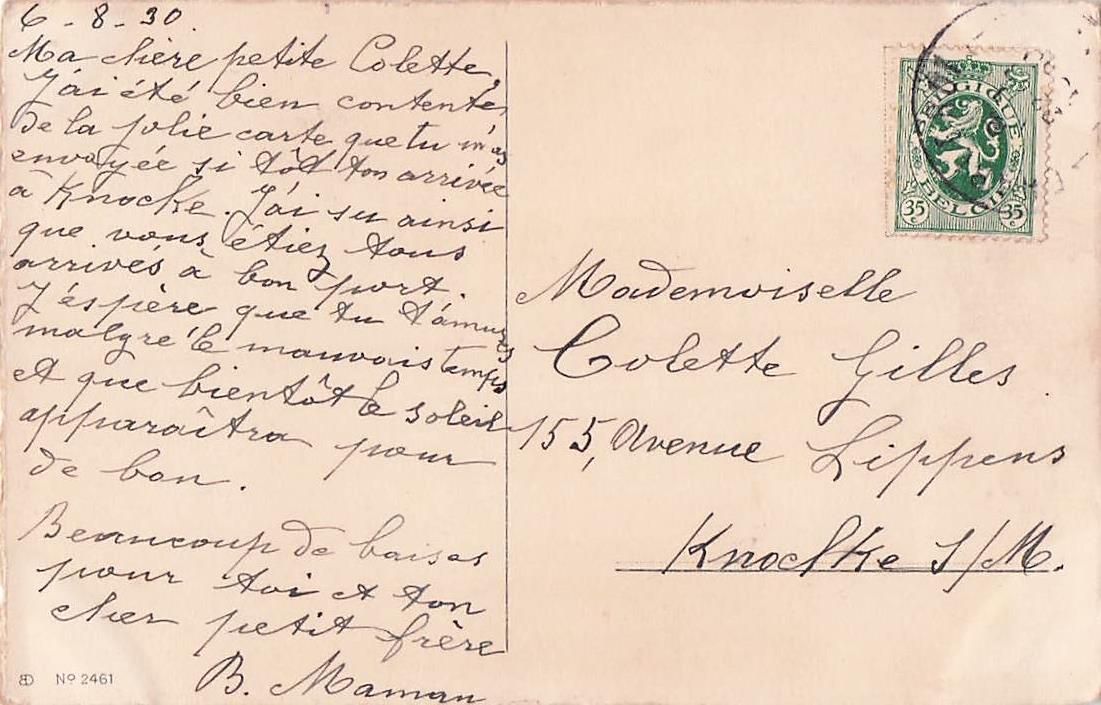 6-8-30
Ma chère petite Colette,
J'ai été bien contente
de la jolie carte que tu m'as
envoyée si tôt ton arrivée
à Knocke. J'ai su ainsi
que vous étiez tous
arrivés à bon port.
J'espère que tu t'amuses
malgré le mauvais temps
et que bientôt le soleil
apparaîtra pour
de bon.
Beaucoup de baises
pour toi et ton
cher petit frère
B. Maman
BELGIQUE
BELGIË
35 c 35 c
Mademoiselle
Colette Gilles
155, Avenue Lippens
Knocke S/M.
Nº 2461